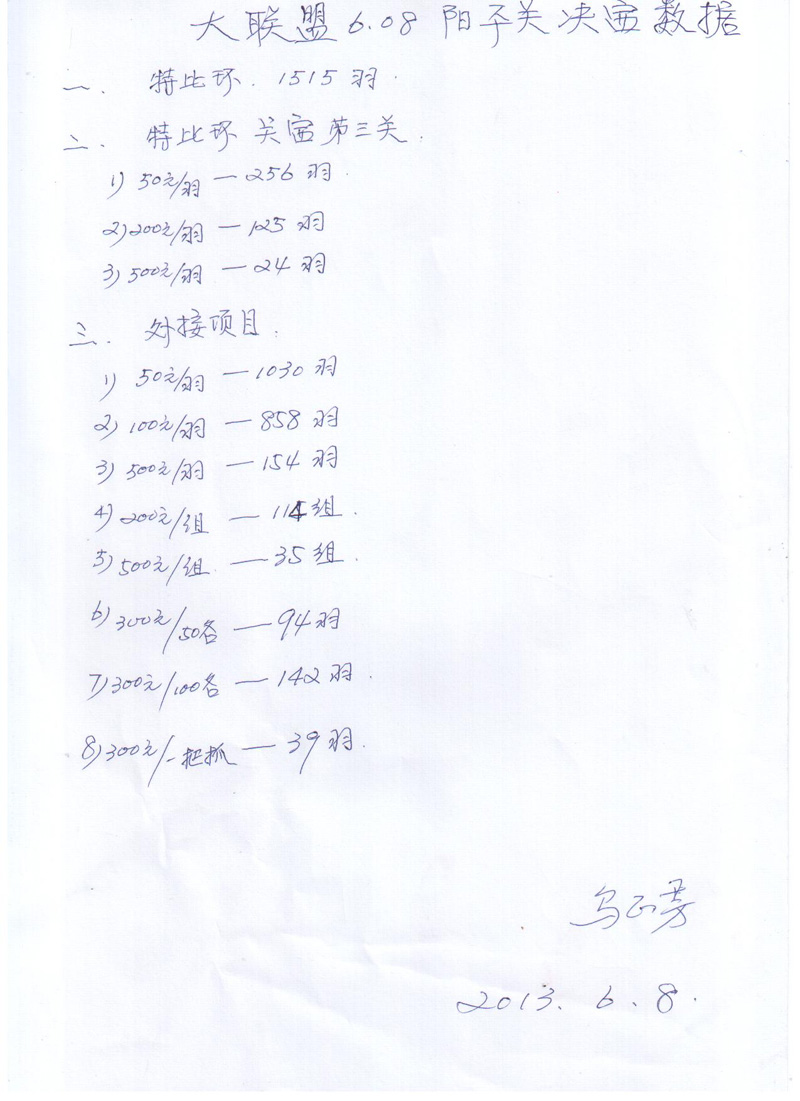 大联盟 6.08 阳子关决赛数据
一. 特比环. 1515 羽.
二. 特比环 关赛 第三关.
1) 50元/羽 — 256 羽.
2) 200元/羽 — 125 羽
3) 500元/羽 — 24 羽
三. 对接项目.
1) 50元/羽 — 1030 羽
2) 100元/羽 — 858 羽
3) 500元/羽 — 154 羽
4) 200元/组 — 114 组.
5) 500元/组 — 35 组.
6) 300元/50名 — 94 羽
7) 300元/100名 — 142 羽.
8) 300元/一把抓 — 39 羽.
2013. 6. 8.